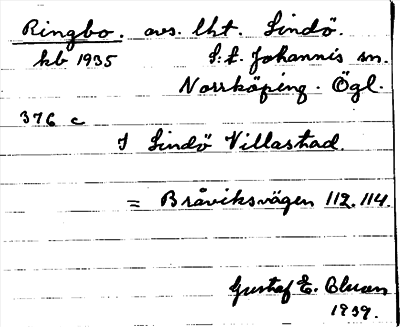 Ringbo. avs. lht. Lindö.
kb 1935 S:t Johannis sn.
Norrköping. Ögl.
376 c
I Lindö Villastad.
= Bråviksvägen 112. 114.
Gustaf E.
1939.